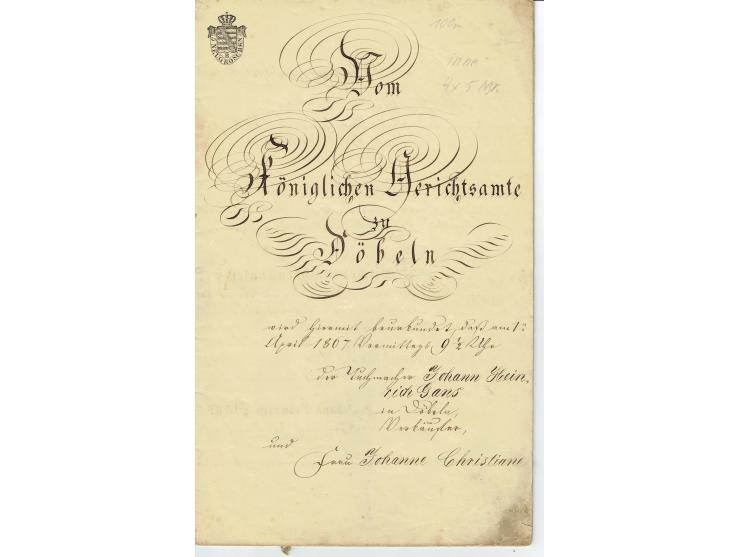 5 NEUGROSCHEN
100,-
4 x 5 Ngr.
Vom
Königlichen Gerichtsamte
zu
Döbeln
wird hiermit beurkundet, daß am 1n
April 1867 Vormittags 9 1/2 Uhr
der Tuchmacher Johann Hein-
rich Gans
in Döbeln,
Verkäufer,
und
Frau Johanne Christiane